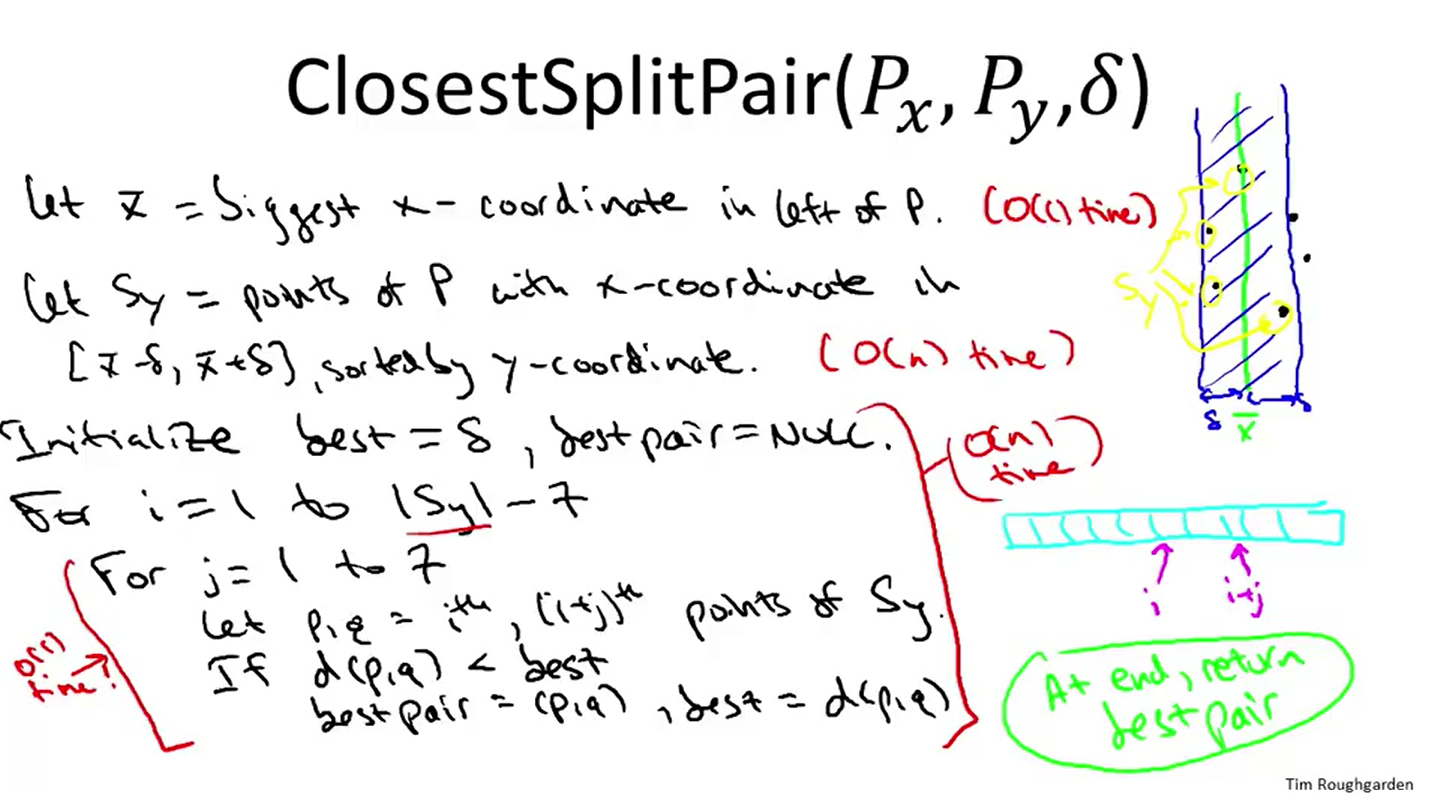 ClosestSplitPair(Pₓ, Pᵧ,δ)
Let x̄ = biggest x-coordinate in left of P. (O(1) time)
Let Sy = points of P with x-coordinate in
[x̄-δ, x̄+δ], sorted by y-coordinate. (O(n) time)
Initialize best = δ, best pair = NULL.
(O(n)
time)
For i = 1 to |Sy| - 7
For j = 1 to 7
Let p,q = iᵗʰ, (i+j)ᵗʰ points of Sy.
If d(p,q) < best
best pair = (p,q), best = d(p,q)
O(1)
time!
Sy
δ
x̄
δ
i
i+j
At end, return
best pair
Tim Roughgarden